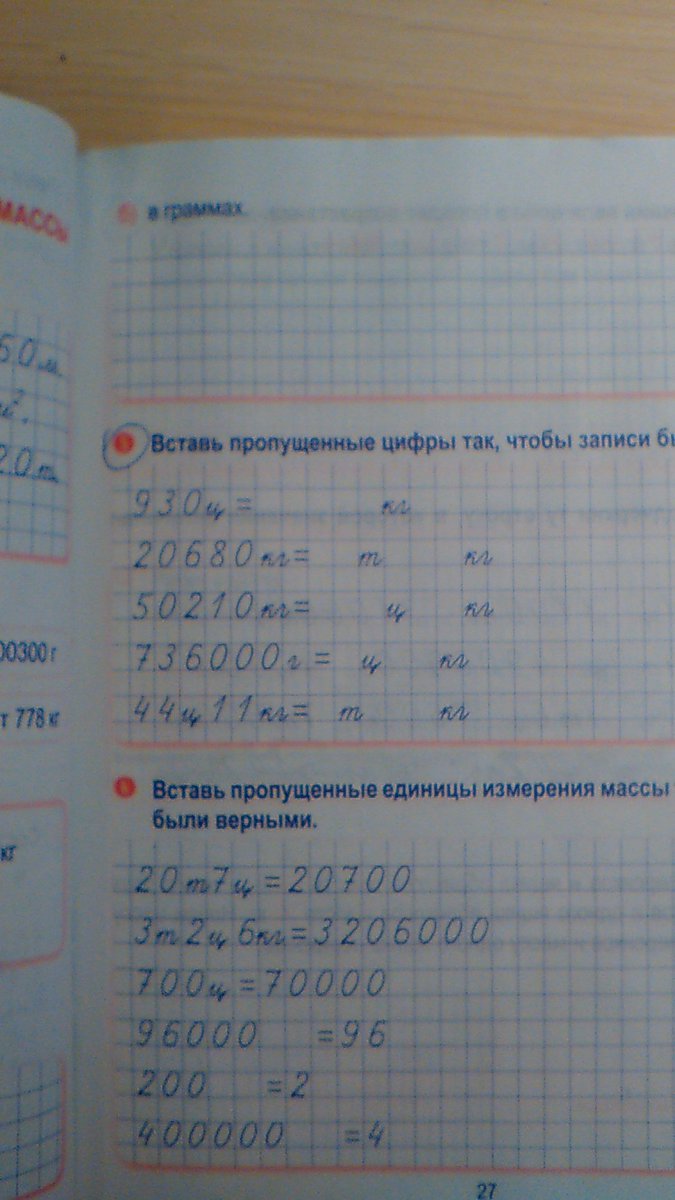 МАССЫ
60 м
м².
20 т
00300 г
т 778 кг
кг
в граммах.
Вставь пропущенные цифры так, чтобы записи бы
930 ц = кг
20680 кг = т кг
50210 кг = ц кг
736000 г = ц кг
44 ц 11 кг = т кг
Вставь пропущенные единицы измерения массы
были верными.
20 т 7 ц = 20700
3 т 2 ц 6 кг = 3206000
700 ц = 70000
96000 = 96
200 = 2
400000 = 4
27